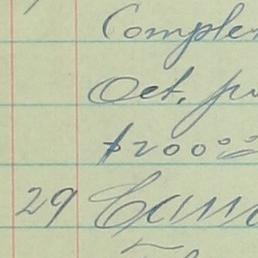 Comple
Oct. pu
$200⁰⁰
29 Cann